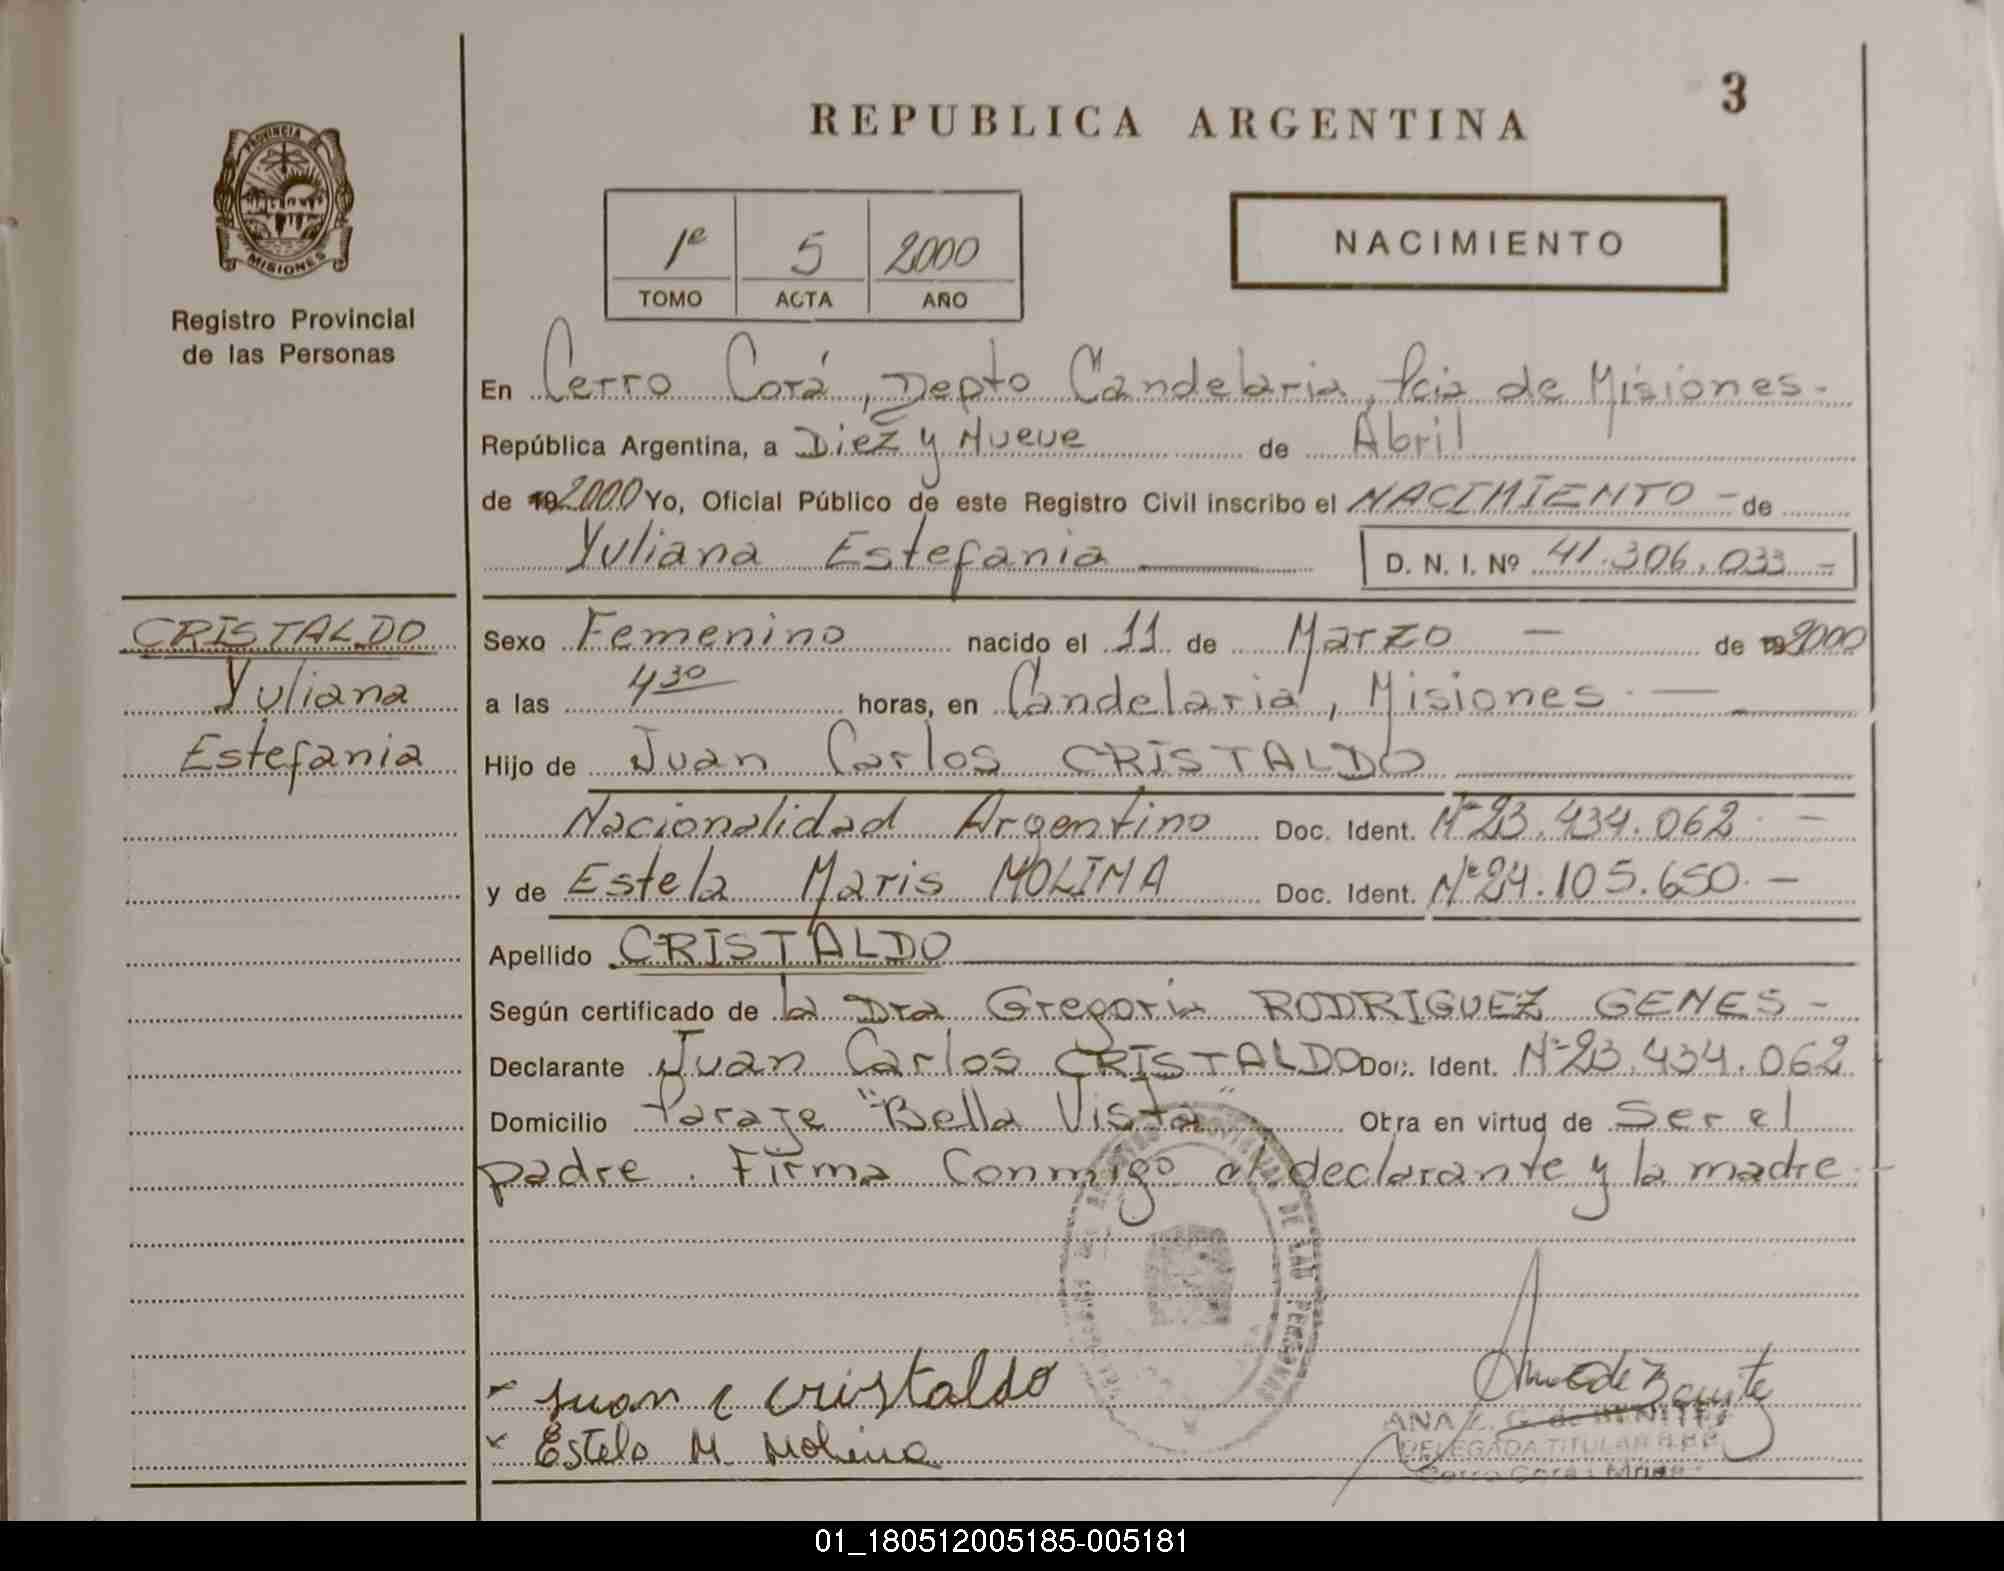 3
REPUBLICA ARGENTINA
PROVINCIA DE
MISIONES
1º 5 2000
TOMO ACTA AÑO
NACIMIENTO
Registro Provincial
de las Personas
En Cerro Corá, Depto Candelaria, Pcia de Misiones-
República Argentina, a Diez y Nueve de Abril
de 19 2000 Yo, Oficial Público de este Registro Civil inscribo el NACIMIENTO - de
Yuliana Estefania D. N. I. Nº 41.306.033 -
CRISTALDO
Yuliana
Estefania
Sexo Femenino nacido el 11 de Marzo - de 19 2000
a las 4 30 horas, en Candelaria, Misiones -
Hijo de Juan Carlos CRISTALDO
Nacionalidad Argentino Doc. Ident. Nº 23.434.062 -
y de Estela Maris MOLINA Doc. Ident. Nº 24.105.650. -
Apellido CRISTALDO
Según certificado de la Dra Gregoria RODRIGUEZ GENES -
Declarante Juan Carlos CRISTALDO Doc. Ident. Nº 23.434.062
Domicilio Paraje "Bella Vista" Obra en virtud de Ser el
padre. Firma Conmigo el declarante y la madre
PROVINCIAL DE LAS PERSONAS
Juan C Cristaldo
Estela M. Molina
ANA G. de BENITEZ
DELEGADA TITULAR R.P.P.
Cerro Corá - Mnes
01_180512005185-005181